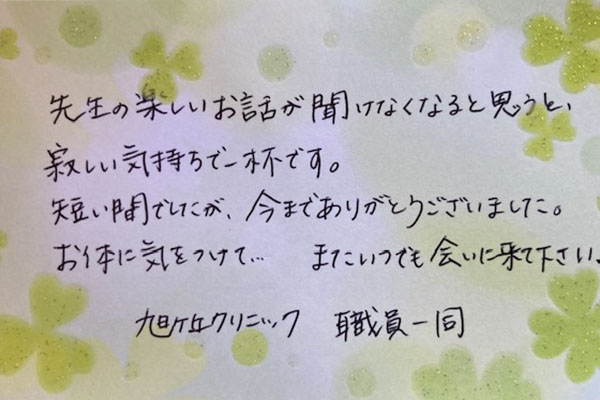 先生の楽しいお話が聞けなくなると思うと、
寂しい気持ちで一杯です。
短い間でしたが、今までありがとうございました。
お体に気をつけて… またいつでも会いに来て下さい。
旭ヶ丘クリニック 職員一同